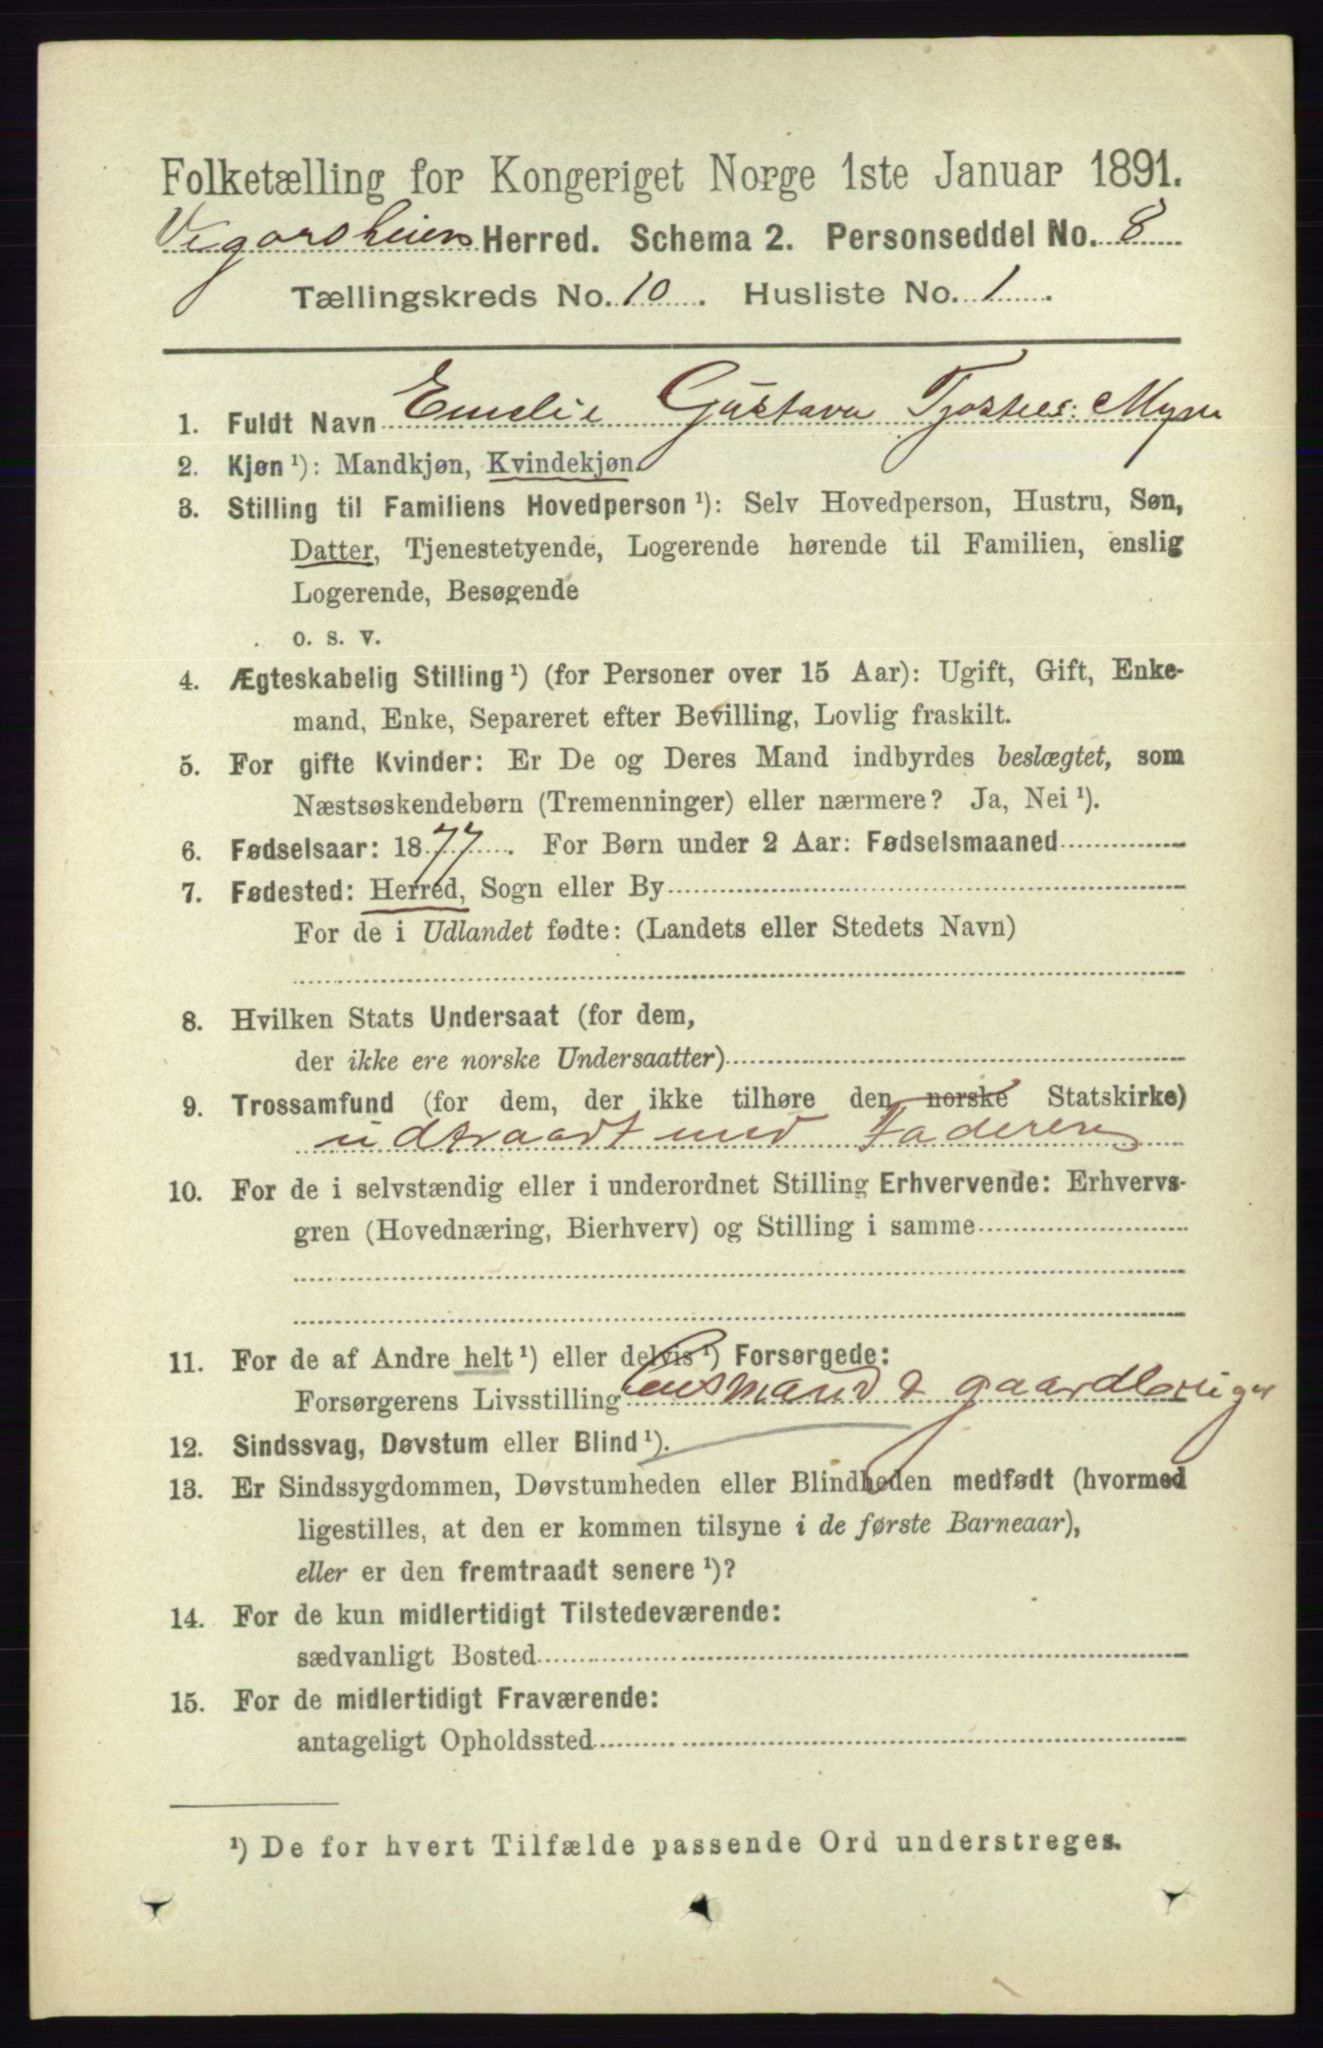 Folketælling for Kongeriget Norge 1ste Januar 1891.
Vegarsheien Herred. Schema 2. Personseddel No. 8
Tællingskreds No. 10. Husliste No. 1.
1. Fuldt Navn Emelie Gustava Tjostvs: Myre
2. Kjøn ¹): Mandkjøn, Kvindekjøn.
3. Stilling til Familiens Hovedperson ¹): Selv Hovedperson, Hustru, Søn,
Datter, Tjenestetyende, Logerende hørende til Familien, enslig
Logerende, Besøgende
o. s. v.
4. Ægteskabelig Stilling ¹) (for Personer over 15 Aar): Ugift, Gift, Enke-
mand, Enke, Separeret efter Bevilling, Lovlig fraskilt.
5. For gifte Kvinder: Er De og Deres Mand indbyrdes beslægtet, som
Næstsøskendebørn (Tremenninger) eller nærmere? Ja, Nei ¹).
6. Fødselsaar: 1877. For Børn under 2 Aar: Fødselsmaaned
7. Fødested: Herred, Sogn eller By
For de i Udlandet fødte: (Landets eller Stedets Navn)
8. Hvilken Stats Undersaat (for dem,
der ikke ere norske Undersaatter)
9. Trossamfund (for dem, der ikke tilhøre den norske Statskirke)
udtraadt med Faderen
10. For de i selvstændig eller i underordnet Stilling Erhvervende: Erhvervs-
gren (Hovednæring, Bierhverv) og Stilling i samme
11. For de af Andre helt ¹) eller delvis ¹) Forsørgede:
Forsørgerens Livsstilling Lensmand & gaardbruger
12. Sindssvag, Døvstum eller Blind ¹).
13. Er Sindssygdommen, Døvstumheden eller Blindheden medfødt (hvormed
ligestilles, at den er kommen tilsyne i de første Barneaar),
eller er den fremtraadt senere ¹)?
14. For de kun midlertidigt Tilstedeværende:
sædvanligt Bosted
15. For de midlertidigt Fraværende:
antageligt Opholdssted
¹) De for hvert Tilfælde passende Ord understreges.